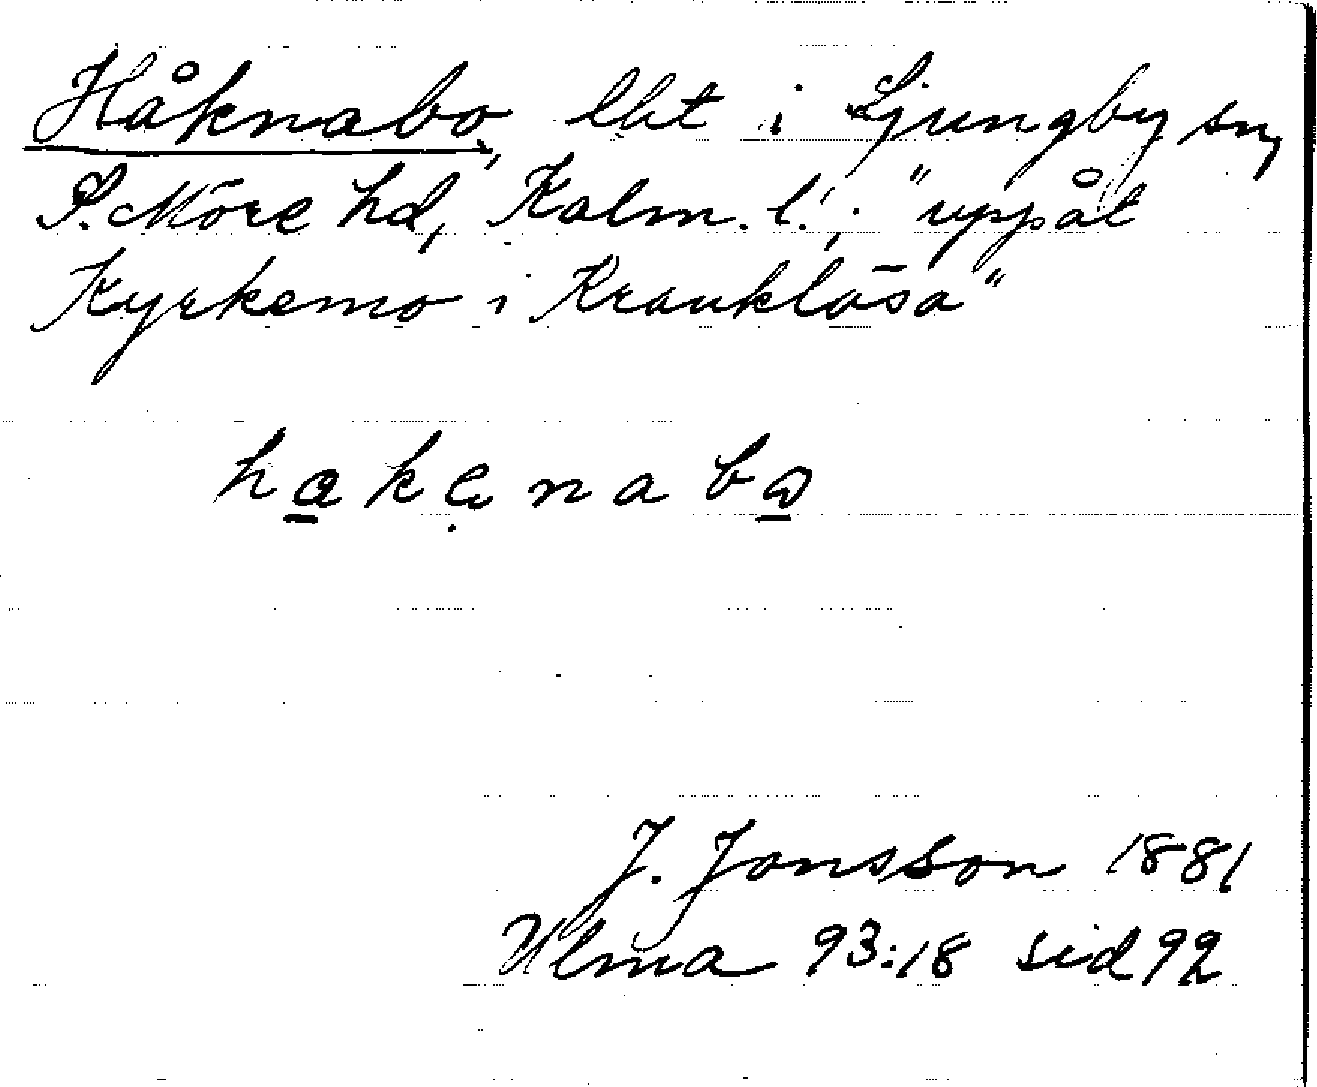 Håknabo, lht i Ljungby sn,
S. Möre hd, Kalm. l., "uppåt
Kyrkemo i Krankläsa"
hakenabo
J. Jonsson 1881
Ulma 93:18 sid 92